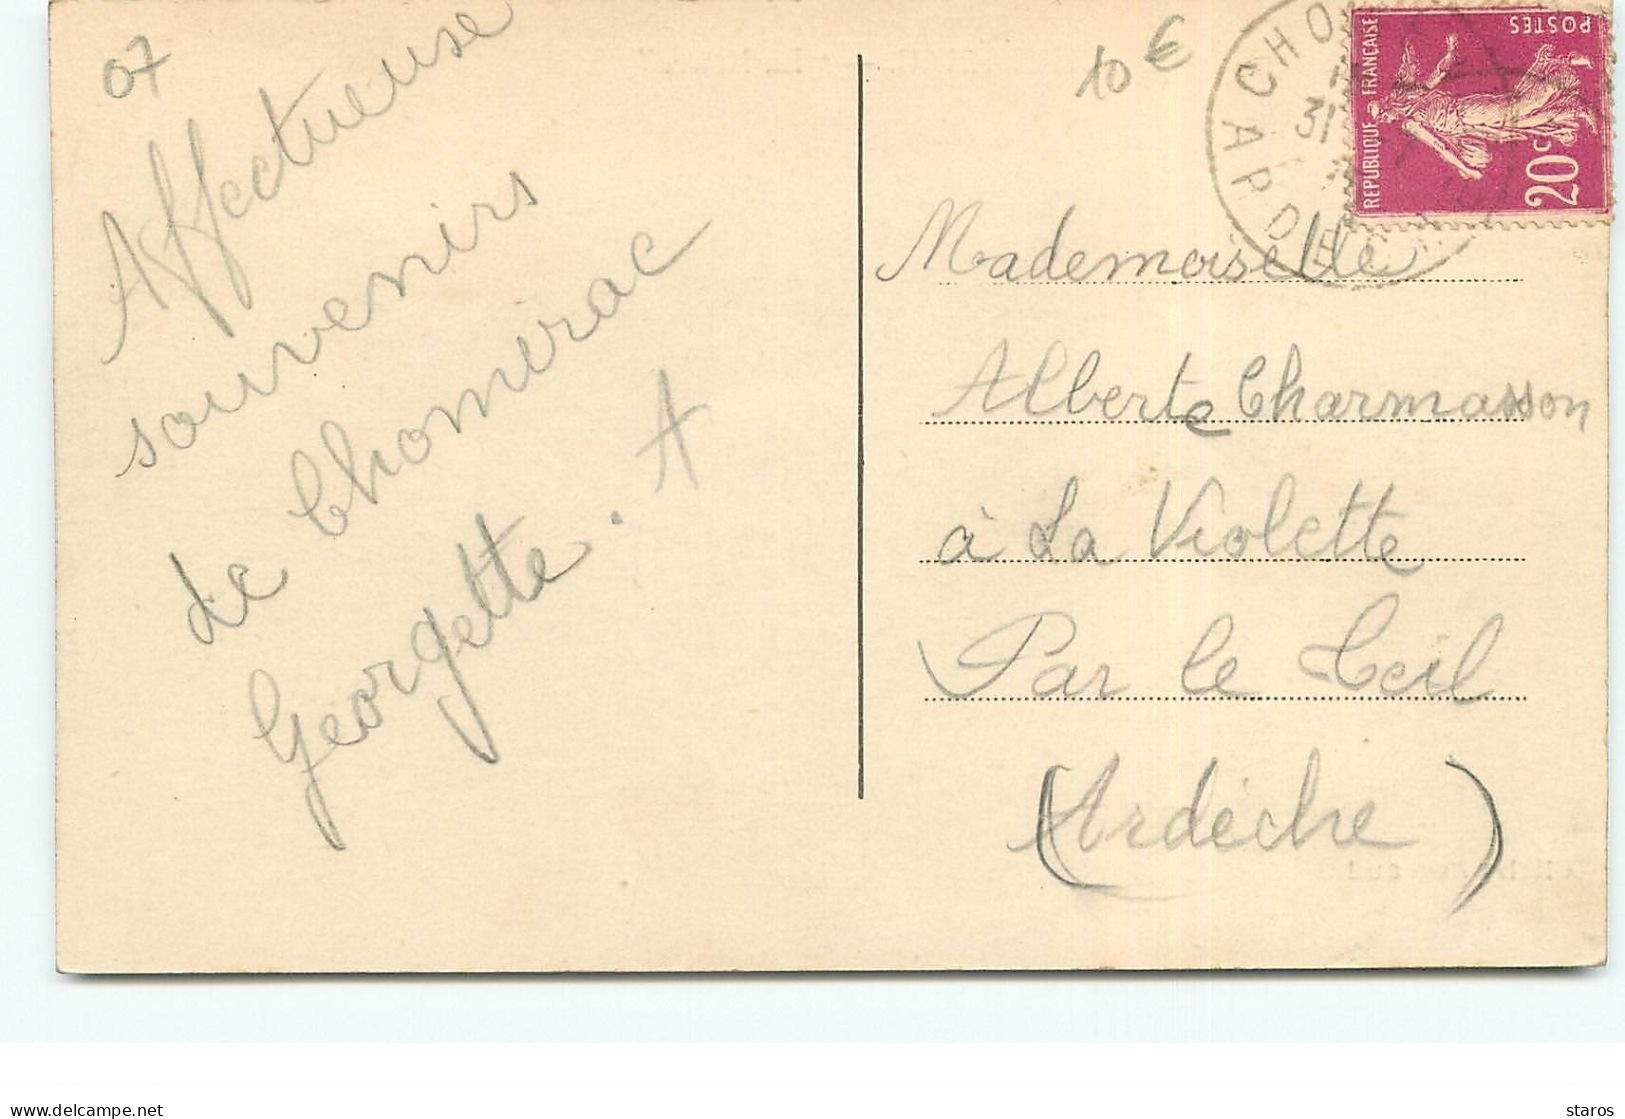 07
Affectueuse
souvenirs
de Chomerac
Georgette. A
10 €
CHO
31
ARDECHE
REPUBLIQUE FRANÇAISE
POSTES
20c
Mademoiselle
Alberte Charmasson
à La Violette
Par le Teil
(Ardèche)
staros